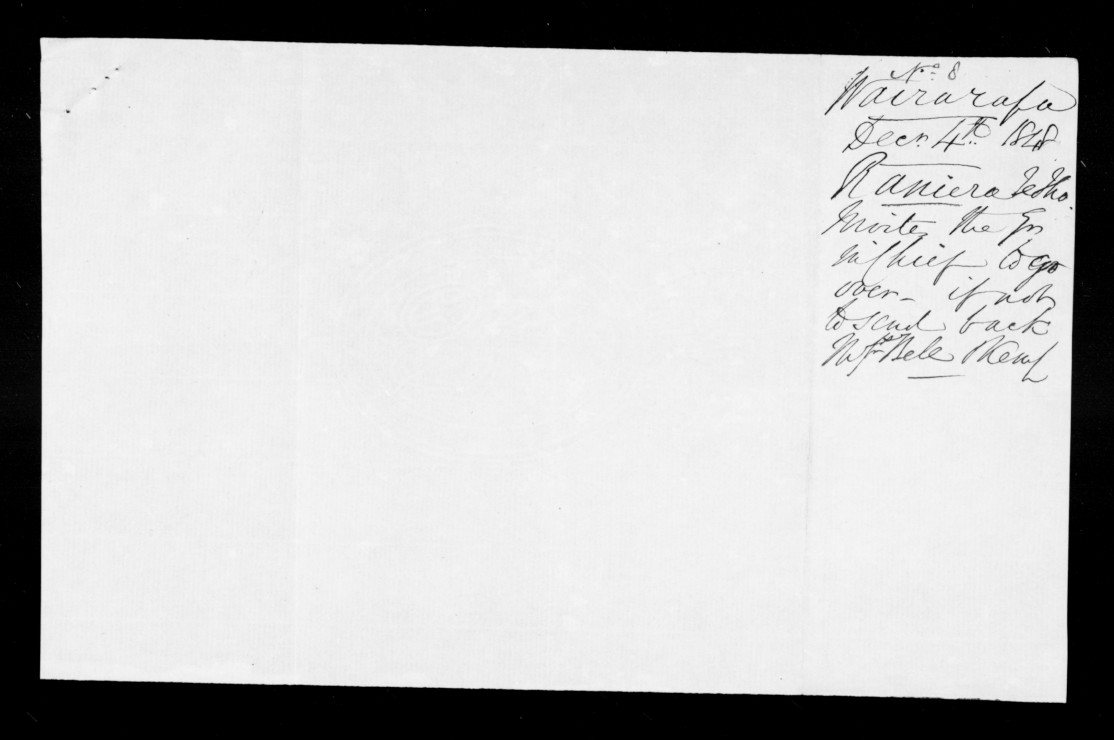 No. 8
Wairarapa
Decr. 4th 1848
Raniera Te Iho.
Invites the Gr
in Chief to go
over - if not
to send back
Messrs Bell & Kemp